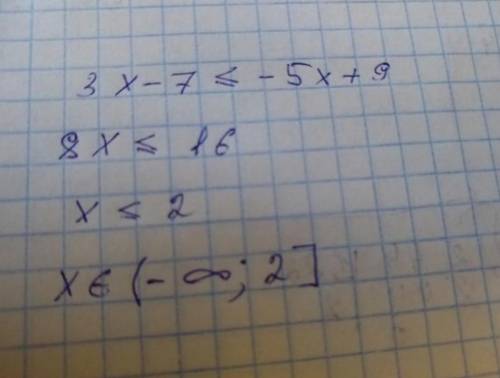 3x-7≤-5x+9
8x≤16
x≤2
x∈(-∞;2]